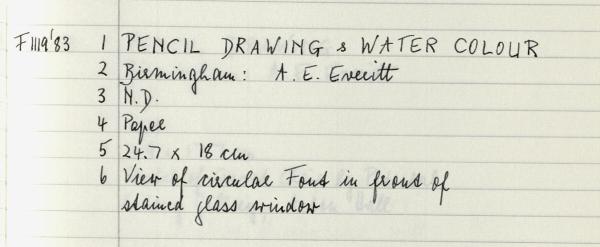 F1119'83 1 PENCIL DRAWING & WATER COLOUR
2 Birmingham: A. E. Everitt
3 N.D.
4 Paper
5 24.7 x 18 cm
6 View of circular Font in front of
stained glass window